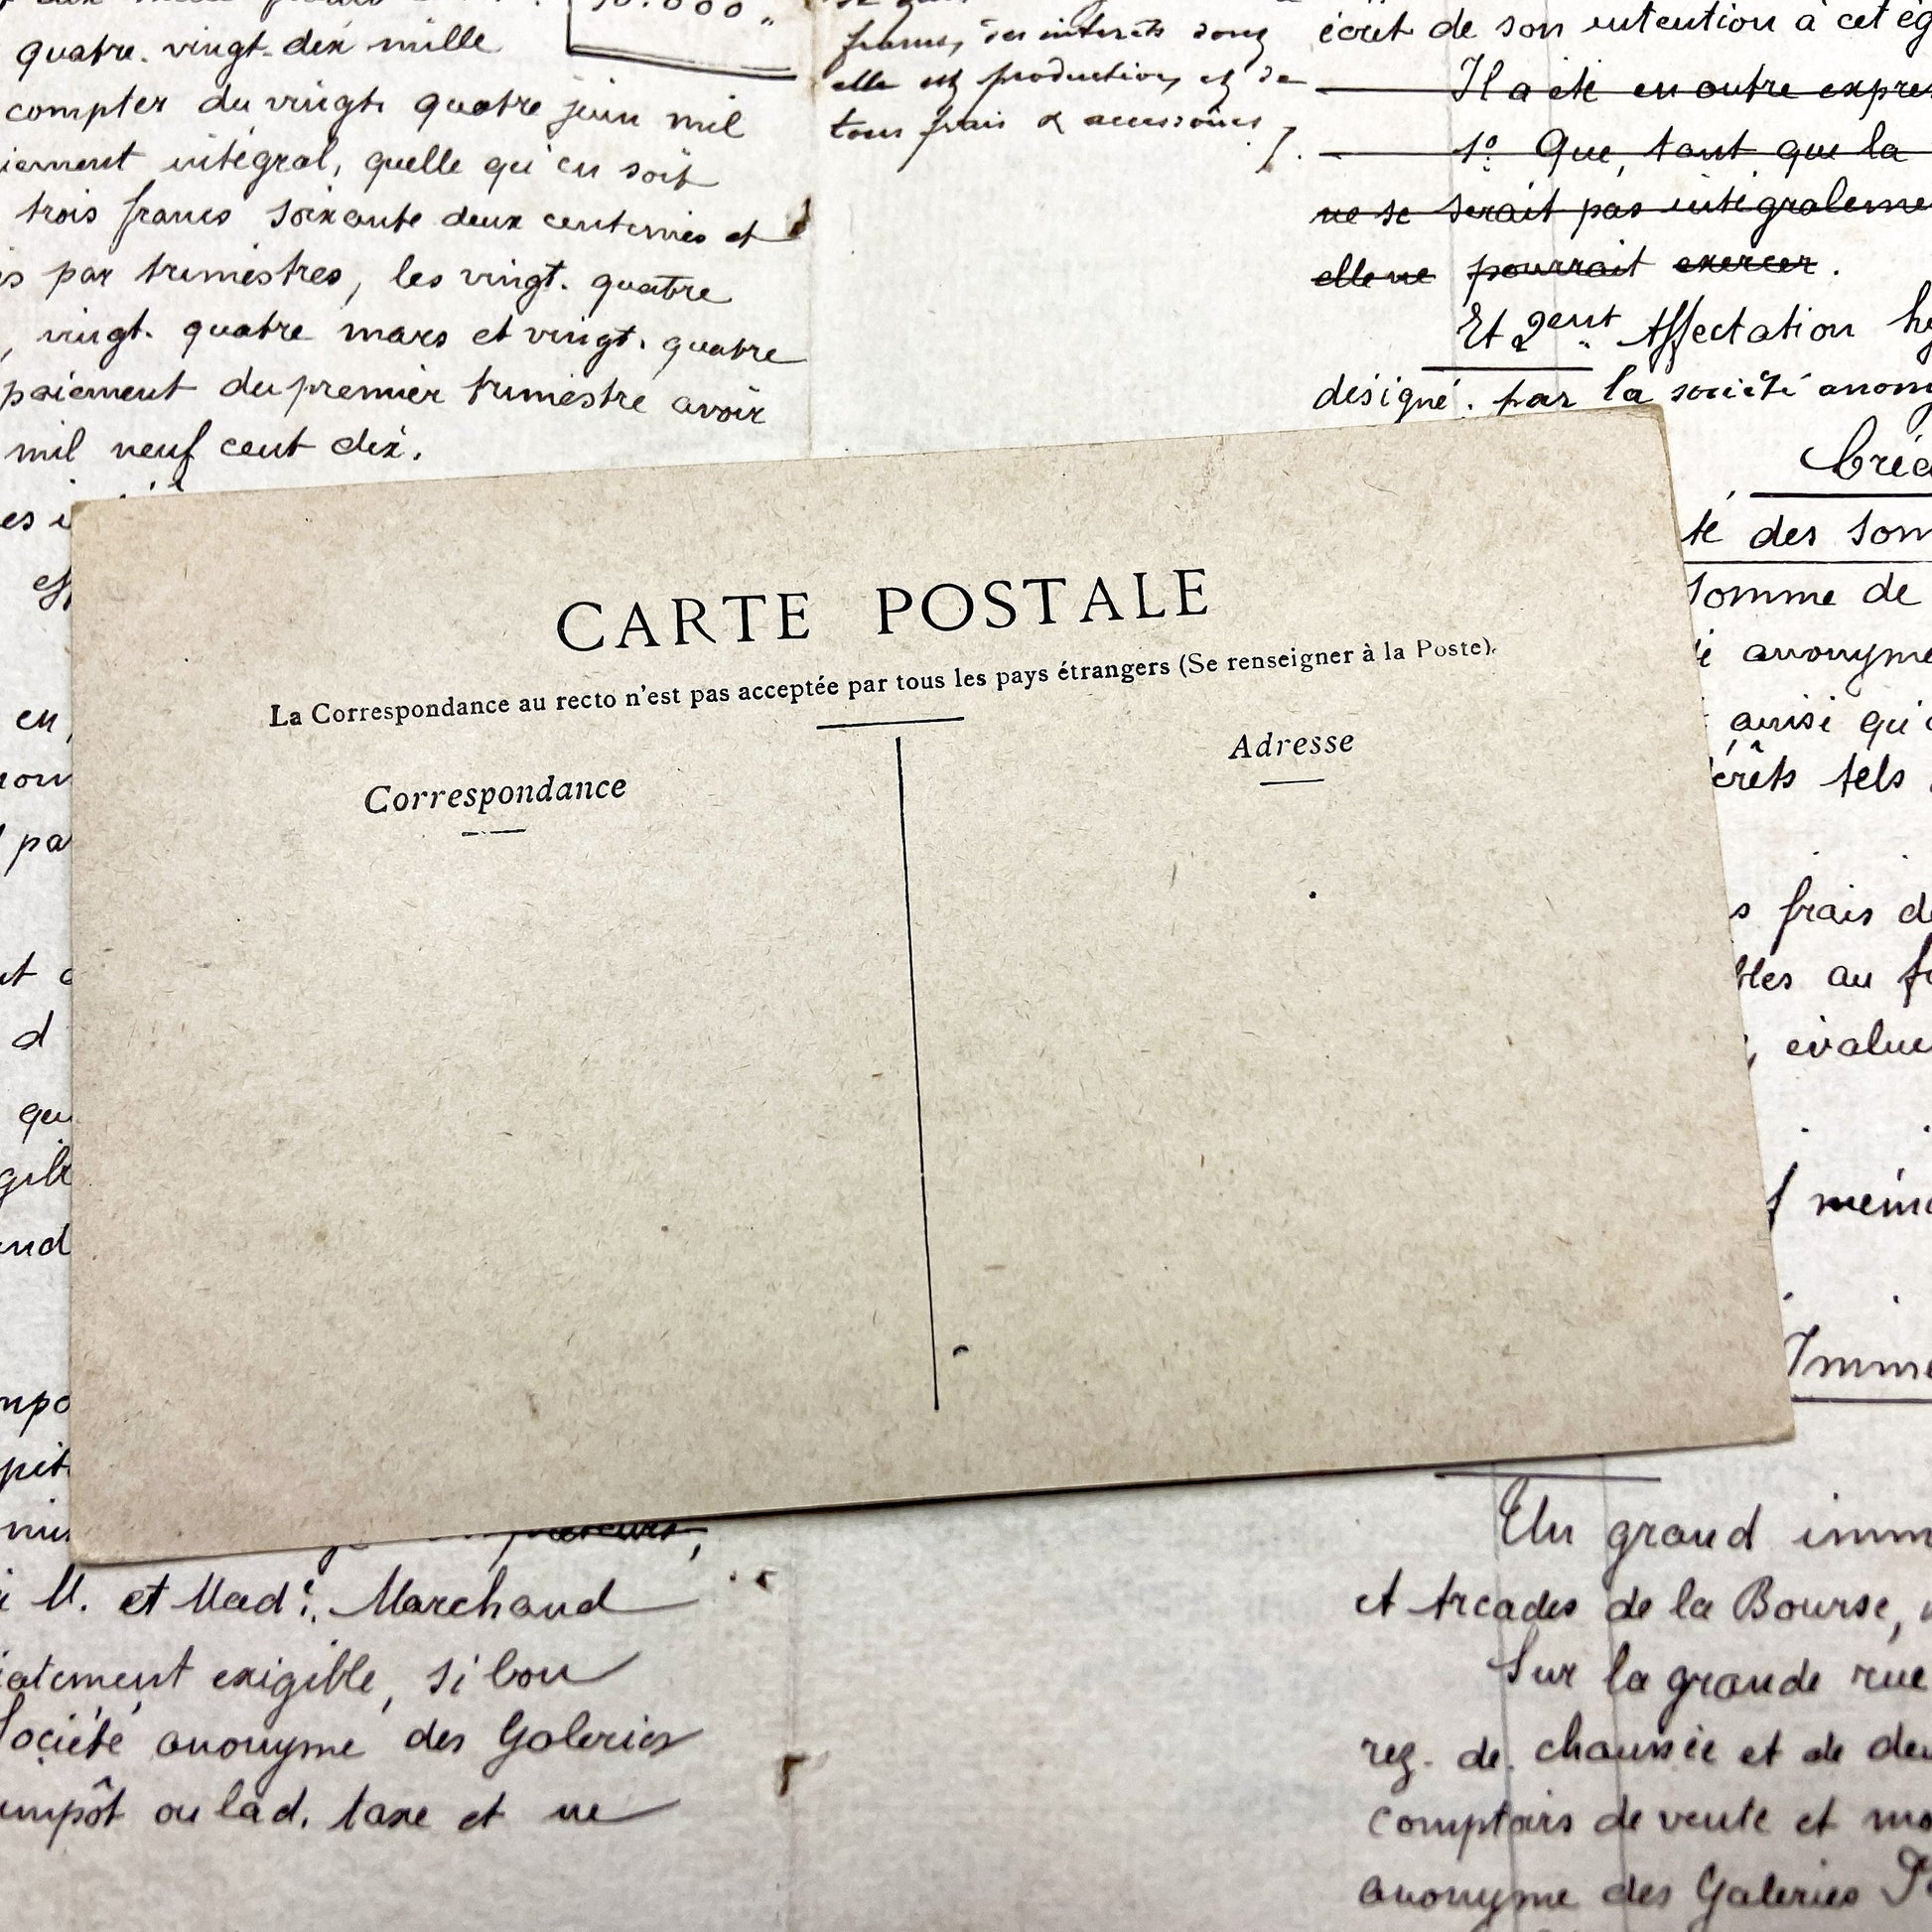 quatre. vingt. dix mille
compter du vingt. quatre juin mil
iement intégral, quelle qu'en soit
trois francs soixante deux centimes et
s par trimestres, les vingt. quatre
, vingt. quatre mars et vingt. quatre
paiement du premier trimestre avoir
mil neuf cent dix.
en
pa
d
M. et Mad. Marchand
iatement exigible, si bon
Société anonyme des Galeries
impôt ou lad. taxe et ne
francs, des intérêts dont
elle est production, et de
tous frais & accessoires
écrit de son intention à cet ég
Il a été en outre expre
1º. Que, tant que la
ne se serait pas intégraleme
elle ne pourrait exercer.
Et 2ent. Affectation hy
désigné. par la société anony
Créa
té des som
somme de
anonyme
ainsi qu'
érêts tels
s frais d
bles au f
, évalue
Imme
Un grand imm
et Arcades de la Bourse,
Sur la grande rue
rez. de. chaussée et de deu
comptoirs de vente et ma
anonyme des Galeries
CARTE POSTALE
La Correspondance au recto n'est pas acceptée par tous les pays étrangers (Se renseigner à la Poste).
Correspondance
Adresse